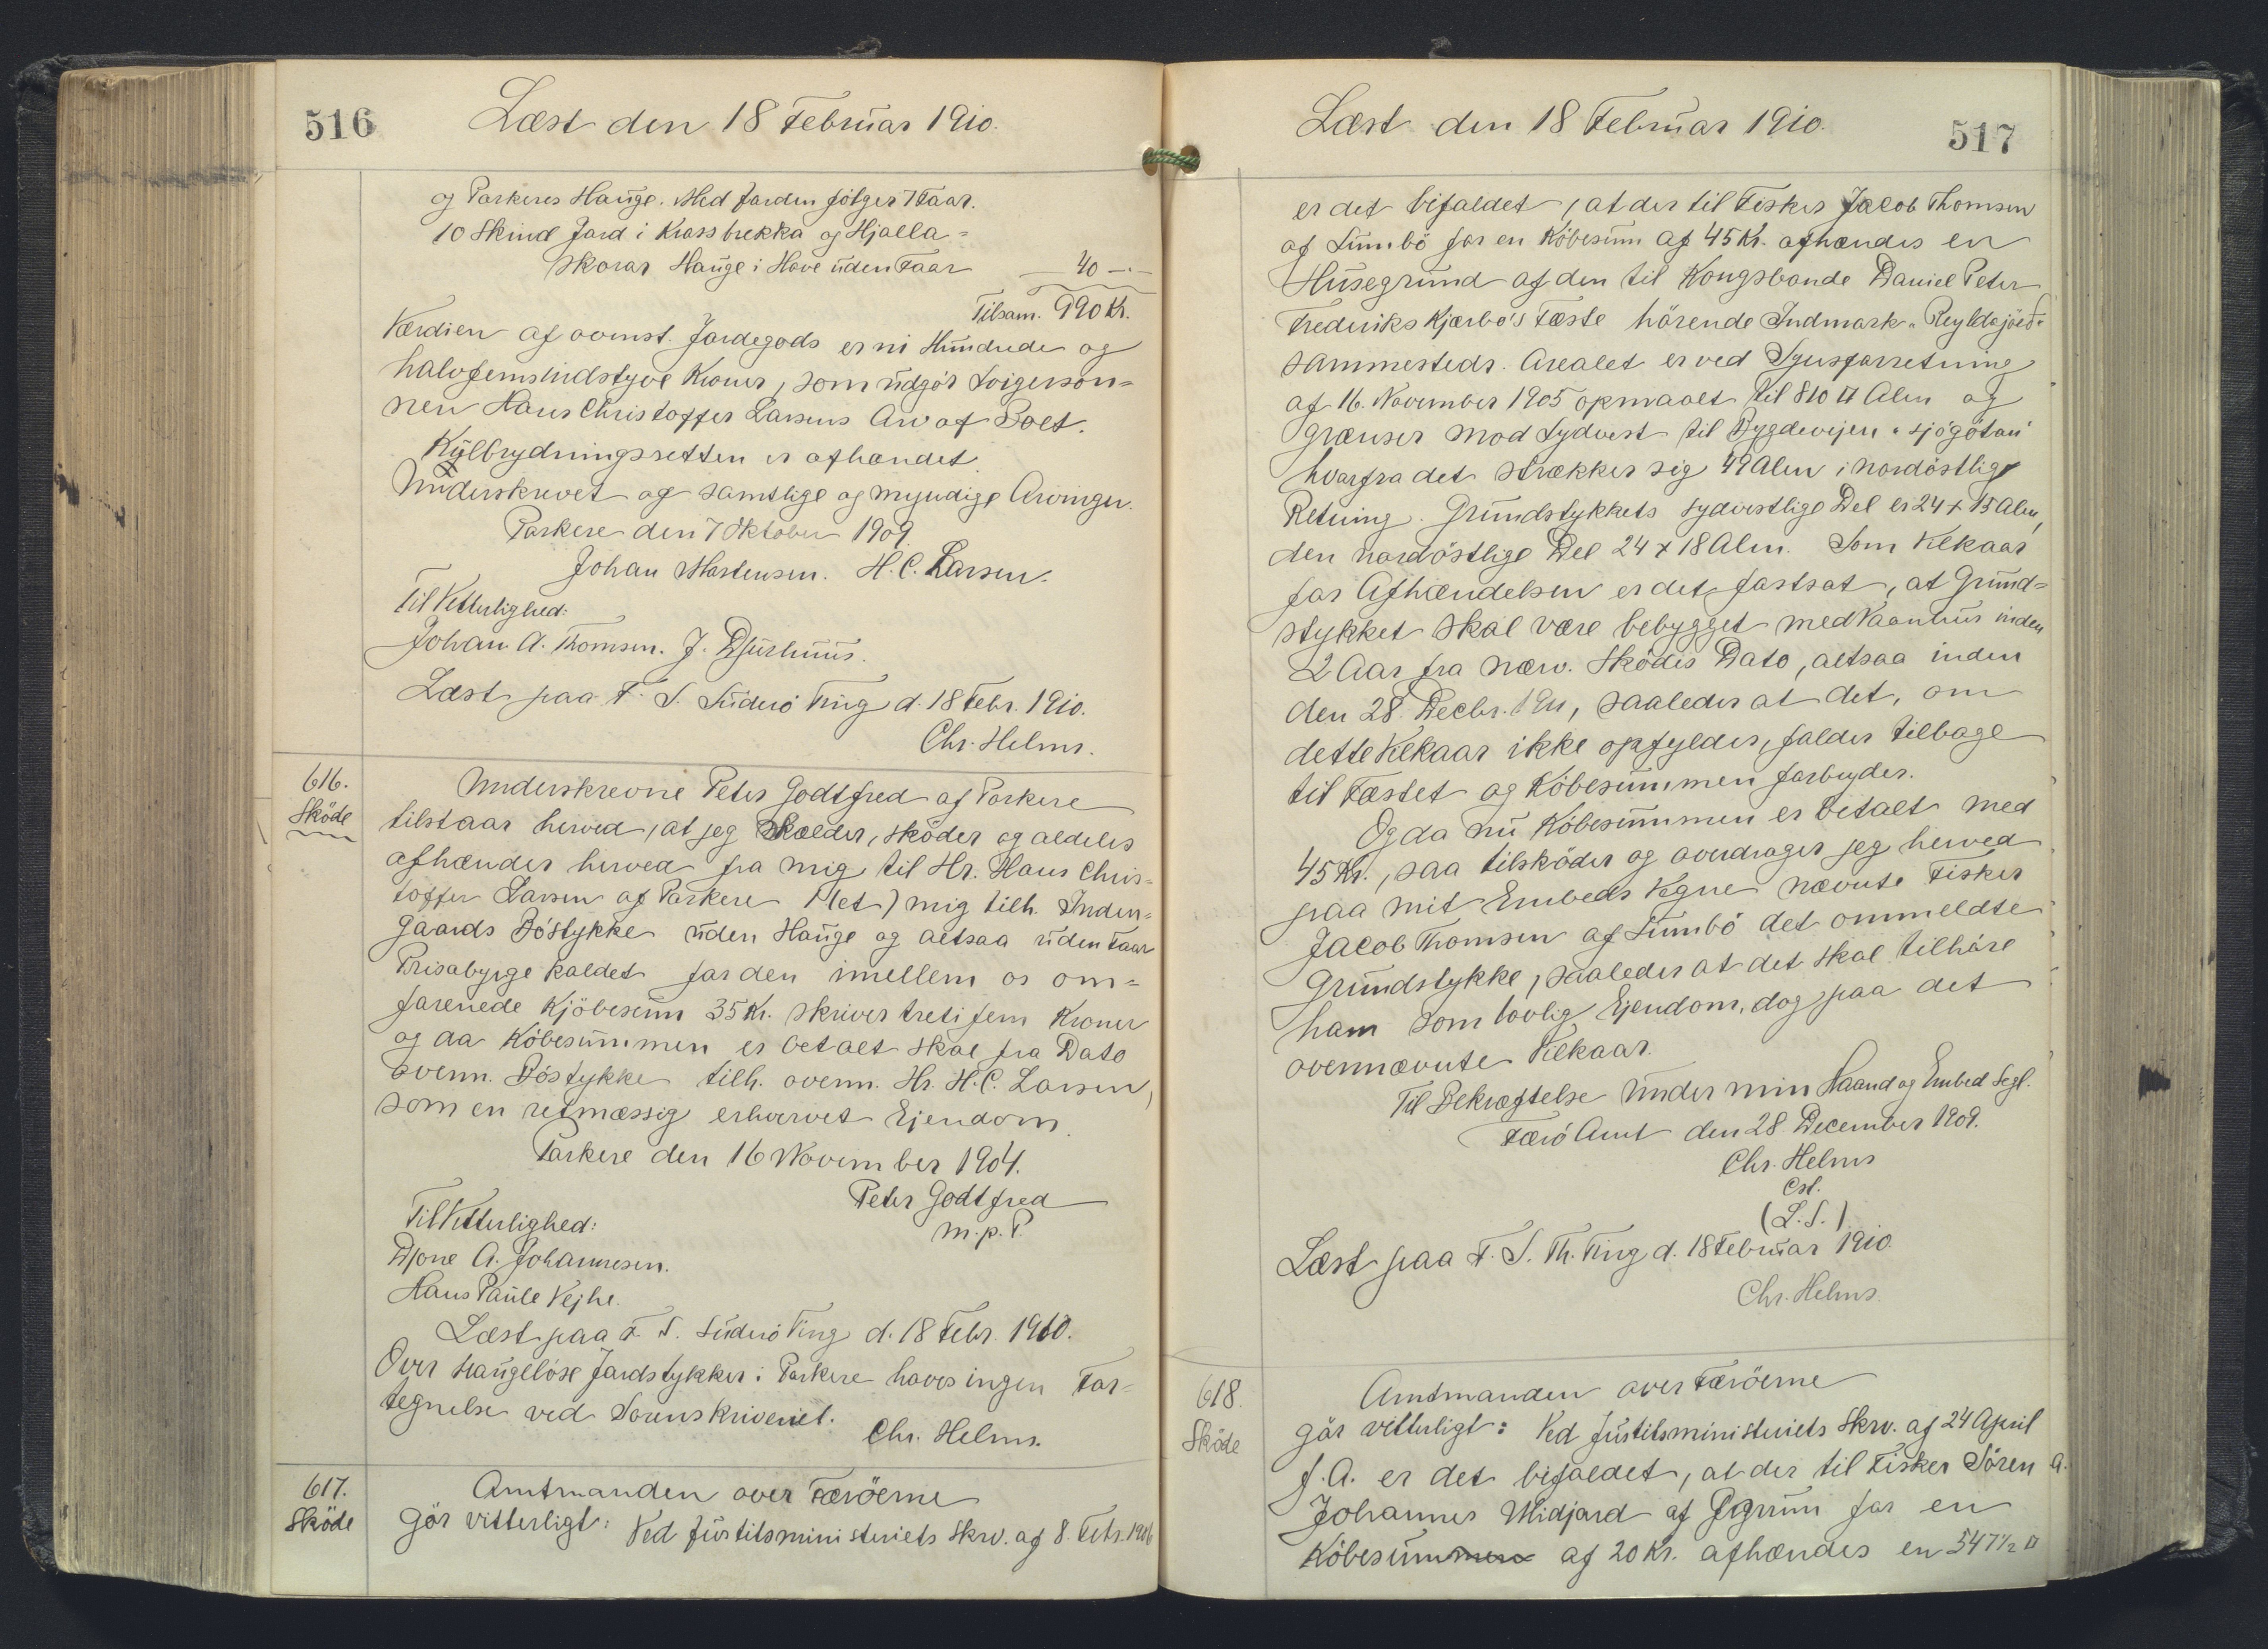 516
Læst den 18 Februar 1910.
og Porkeres Hauge. Med Jorden følger 7 Faar.
10 Skind Jord i Krossbrekka og Hjalla=
skorar Hauge i Hove uden Faar — 40 —.—
Tilsam. 990 Kr.
Værdien af ovnst. Jordegods er ni Hundrede og
halvfemsindstyve Kroner, som udgør Svigerson=
nen Hans Christoffer Larsens Arv af Boet.
Kylbrydningsretten er afhændet.
Underskrevet af samtlige og myndige Arvinger.
Porkere den 7 Oktober 1909.
Johan Mortensen. H. C. Larsen.
Til Vitterlighed:
Johan A. Thomsen. J. Djurhuus.
Læst paa F. S. Suderø Ting d. 18 Febr. 1910.
Chr. Helms.
616.
Skøde
Underskrevne Peter Godtfred af Porkere
tilstaar herved, at jeg sælder, skøder og aldeles
afhænder herved fra mig til Hr. Hans Chris=
toffer Larsen af Porkere 1 (et) mig tilh. Inder=
gaards Bøstykke uden Hauge og altsaa uden Faar
Prisabyrge kaldet for den imellem os om=
forenede Kjøbesum 35 Kr. skriver treti fem Kroner
og da Købesummen er betalt skal fra Dato
ovenn. Bøstykke tilh. ovenn. Hr. H. C. Larsen,
som en retmæssig erhvervet Ejendom.
Porkere den 16 November 1904.
Peter Godtfred
m. p. P.
Til Vitterlighed:
Djone A. Johannesen.
Hans Paule Vejhe.
Læst paa F. S. Suderø Ting d. 18 Febr. 1910.
Over haugeløse Jordstykker i Porkere haves ingen For=
tegnelse ved Sorenskriveriet.
Chr. Helms.
617.
Skøde
Amtmanden over Færøerne
Gør vitterligt: Ved Justitsministeriets Skrv. af 8. Febr. 1906
Læst den 18 Februar 1910.
517
er det bifaldet, at der til Fisker Jacob Thomsen
af Sumbø for en Købesum af 45 Kr. afhændes en
Husegrund af den til Kongsbonde Daniel Peter
Frederiks Kjærbo's Fæste hørende Indmark
sammesteds. Arealet er ved Synsforretning
af 16. November 1905 opmaalt til 810 □ Alen og
grænser mod Sydvest til Bygdevejen "Sjógøtan"
hvorfra det strækker sig 49 Alen i nordøstlig
Retning. Grundstykkets sydvestlige Del er 24 x 15 Alen,
den nordøstlige Del 24 x 18 Alen. Som Vilkaar
for Afhændelsen er det fastsat, at Grund=
stykket skal være bebygget med Vaanhus inden
2 Aar fra nærv. Skødes Dato, altsaa inden
den 28. Decbr. 1911, saaledes at det, om
dette Vilkaar ikke opfyldes, falder tilbage
til Fæstet og Købesummen forbryder.
Og da nu Købesummen er betalt med
45 Kr., saa tilskøder og overdrager jeg herved
paa mit Embeds Vegne nævnte Fisker
Jacob Thomsen af Sumbø det ommeldte
Grundstykke, saaledes at det skal tilhøre
ham som lovlig Ejendom, dog paa det
ovennævnte Vilkaar.
Til Bekræftelse under min Haand og Embed Segl.
Færø Amt den 28 December 1909.
Chr. Helms
cst.
(L. S.)
Læst paa F. S. Th. Ting d. 18 Februar 1910.
Chr. Helms.
618.
Skøde
Amtmanden over Færøerne
gør vitterligt: Ved Justitsministeriets Skrv. af 24 April
f. A. er det bifaldet, at der til Fisker Søren A.
Johannes Midjord af for en
Købesummen af 20 Kr. afhændes en 547 1/2 □